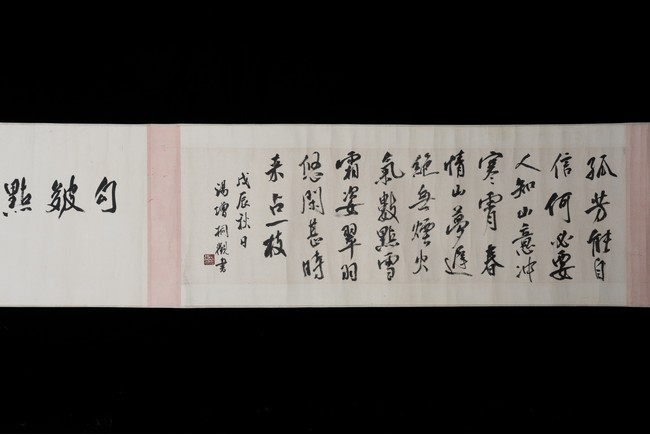 孤芳能自
信何必要
人知山意冲
寒霄春
情山夢遲
絶無煙火
氣數點雪
霜姿翠羽
悠閑甚時
来占一枝
戊辰秋日
湯增桐書
勾皴點